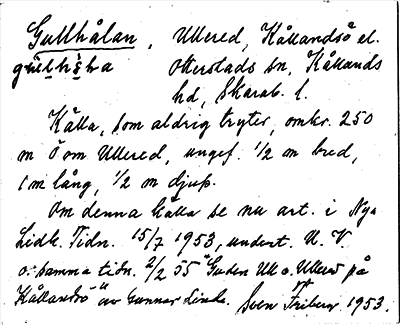 Gullhålan, Ullered, Kållandsö el.
Otterstads sn, Kållands
hd, Skarab. l.
Källa, som aldrig tryter, omkr. 250
m Ö om Ullered, ungef. 1/2 m bred,
1 m lång, 1/2 m djup.
Om denna källa se nu art. i Nya
Lidk. Tidn. 15/7 1953, undert. U. V.
o. samma tidn. 2/2 55 "Guden Ull o. Ullered på
Kållandsö" av Gunnar Linde. Sven 1953.